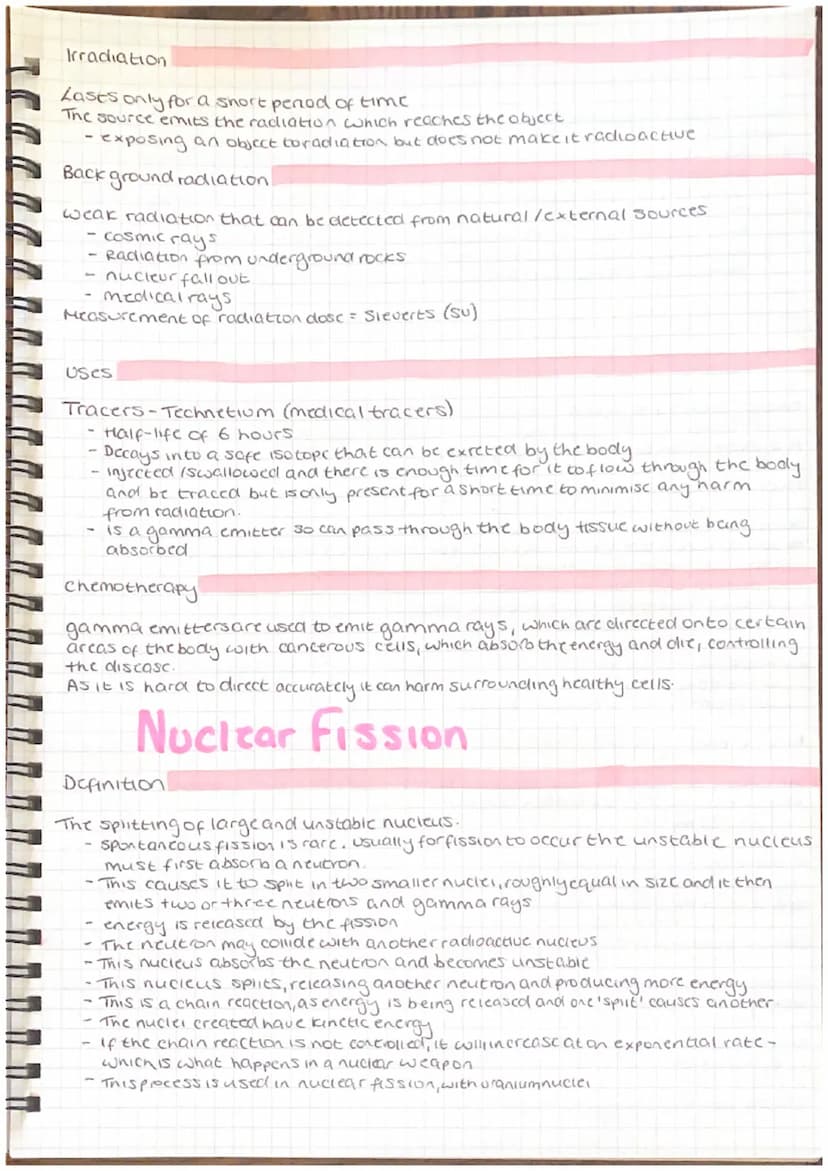 Irradiation
Lasts only for a short period of time
The source emits the radiation which reaches the object
- exposing an object to radiation but does not make it radioactive
Background radiation
weak radiation that can be detected from natural / external sources
- cosmic rays
- Radiation from underground rocks
- nuclear fall out
- medical rays
Measurement of radiation dose = Sieverts (Sv)
Uses
Tracers - Technetium (medical tracers)
- Half-life of 6 hours
- Decays into a safe isotope that can be excreted by the body
- injected / swallowed and there is enough time for it to flow through the body
and be traced but is only present for a short time to minimise any harm
from radiation.
- is a gamma emitter so can pass through the body tissue without being
absorbed
Chemotherapy
gamma emitters are used to emit gamma rays, which are directed onto certain
areas of the body with cancerous cells, which absorb the energy and die, controlling
the disease.
As it is hard to direct accurately it can harm surrounding healthy cells.
Nuclear Fission
Definition
The splitting of large and unstable nucleus.
- spontaneous fission is rare. usually for fission to occur the unstable nucleus
must first absorb a neutron.
- This causes it to split in two smaller nuclei, roughly equal in size and it then
emits two or three neutrons and gamma rays
- energy is released by the fission
- The neutron may collide with another radioactive nucleus
- This nucleus absorbs the neutron and becomes unstable
- This nucleus splits, releasing another neutron and producing more energy
- This is a chain reaction, as energy is being released and one 'split' causes another.
- The nuclei created have kinetic energy
- If the chain reaction is not controlled, it will increase at an exponential rate -
which is what happens in a nuclear weapon
- This process is used in nuclear fission, with uranium nuclei